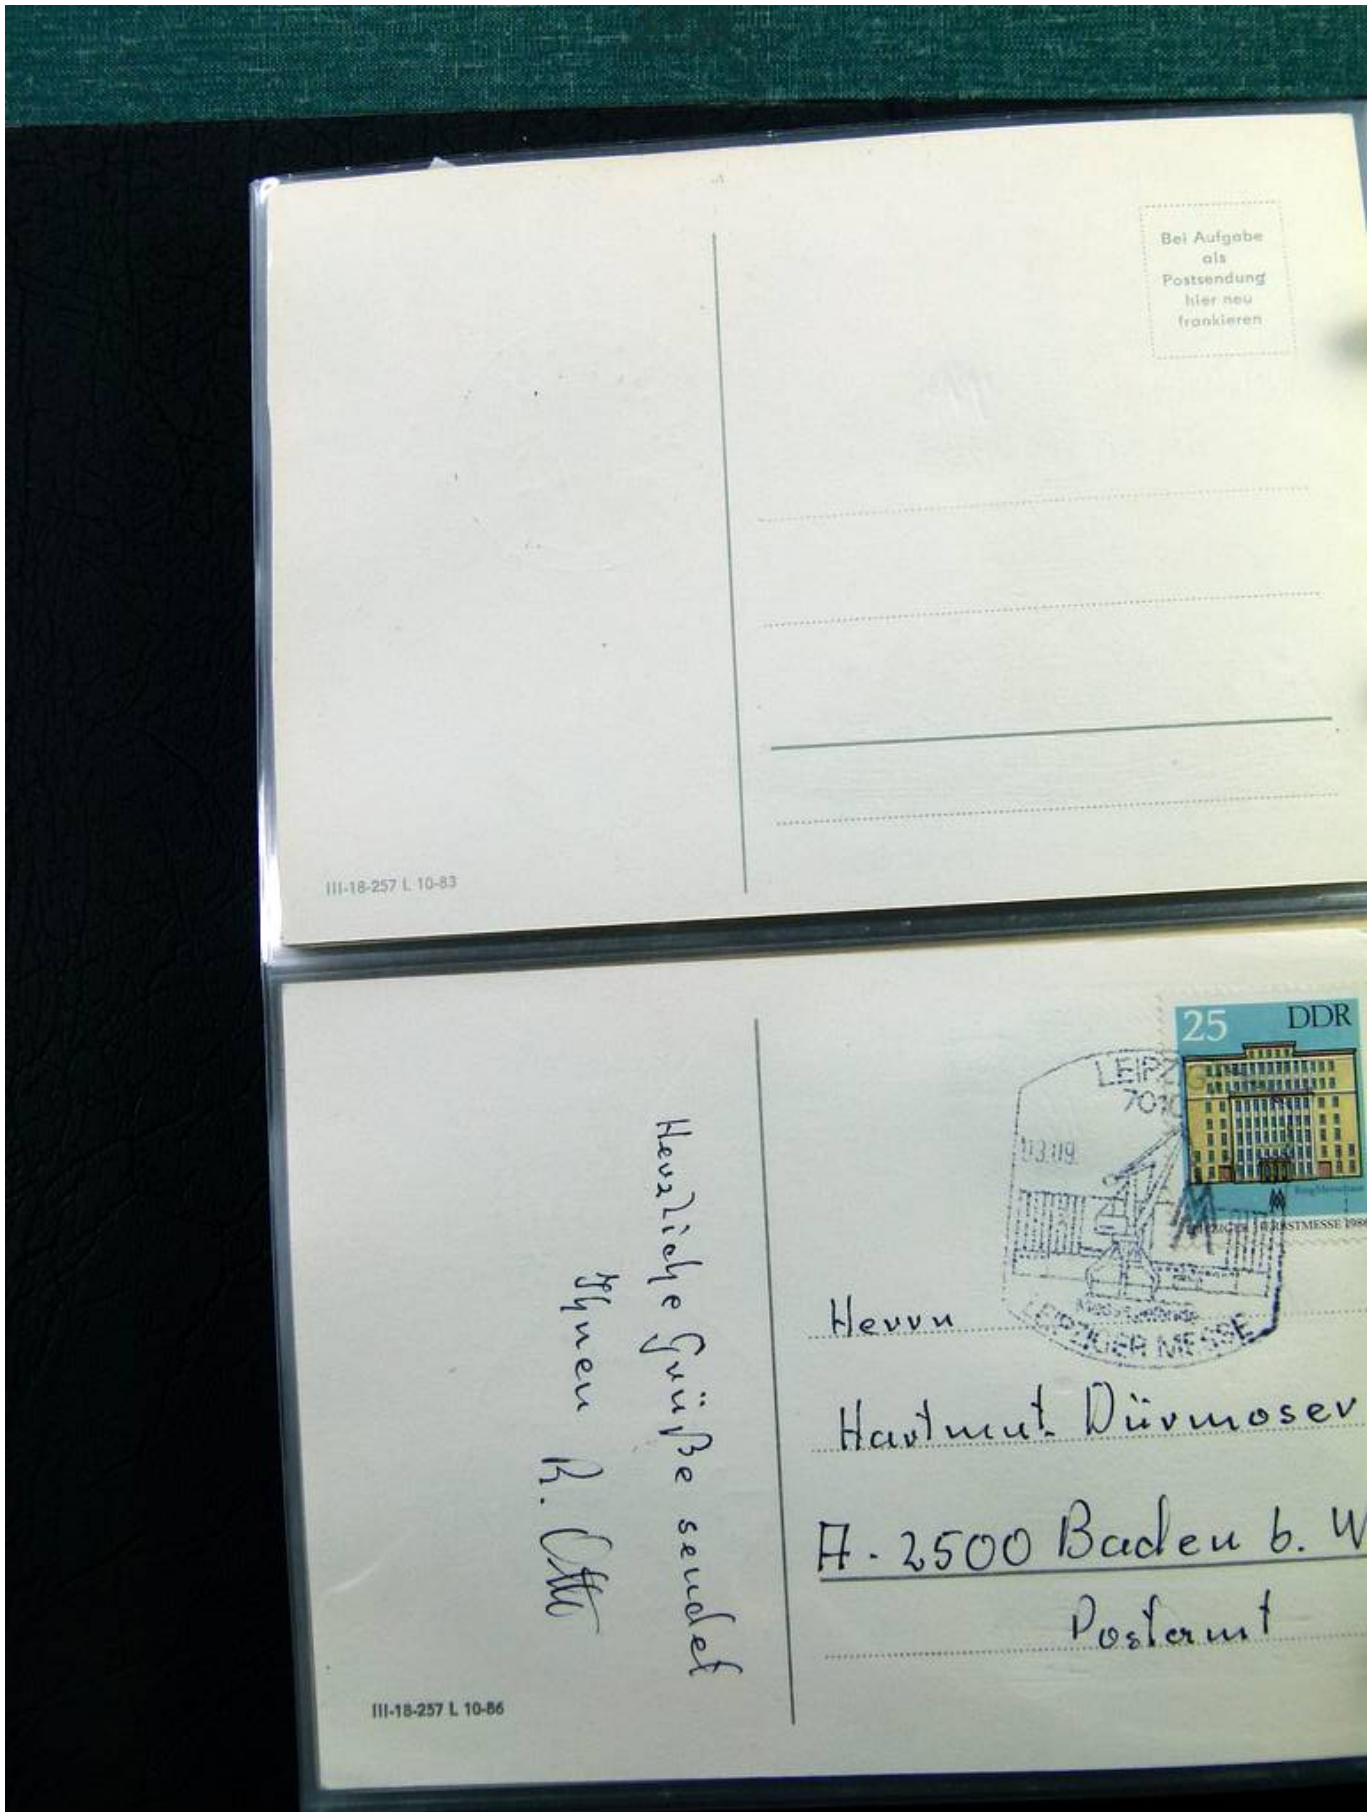 Bei Aufgabe
als
Postsendung
hier neu
frankieren
III-18-257 L 10-83
25 DDR
LEIPZIG
7010
03.09.
LEIPZIGER MESSE
HERBSTMESSE 1986
Herzliche Grüße sendet
Ihnen R. Otto
Herrn
Hartmut Dürmoser
A-2500 Baden b. W
Postamt
III-18-257 L 10-86